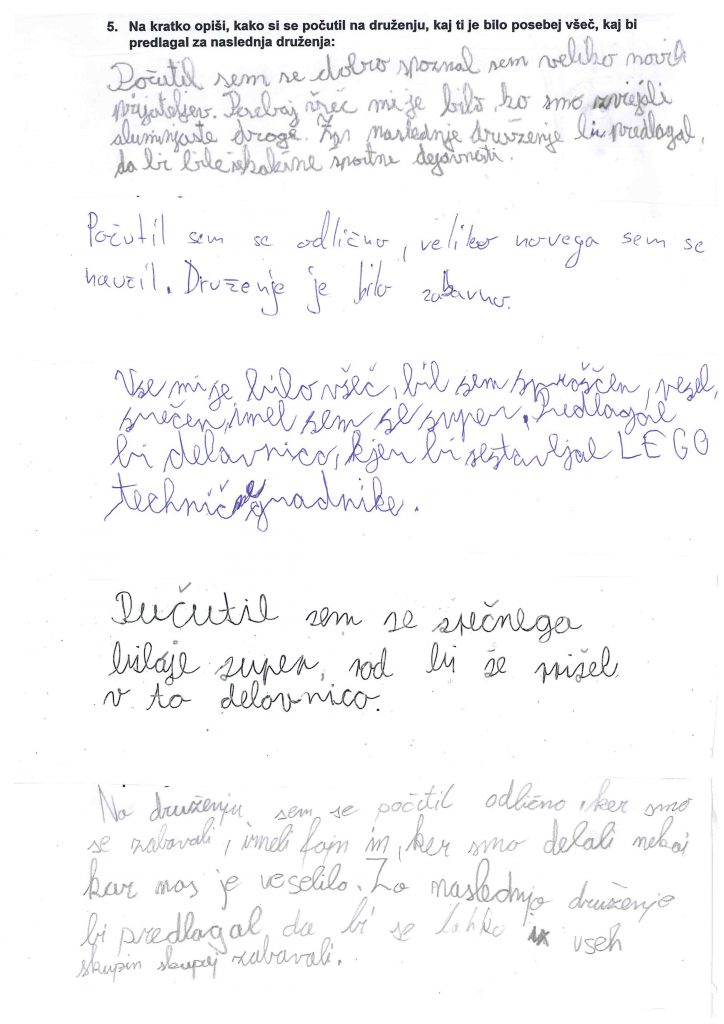 5. Na kratko opiši, kako si se počutil na druženju, kaj ti je bilo posebej všeč, kaj bi
predlagal za naslednja druženja:
Počutil sem se dobro spoznal sem veliko novih
prijateljev. Posebaj všeč mi je bilo, ko smo zvrejali
aluminjaste droge. Za naslednje druženje bi predlagal,
da bi bile nekakšne športne dejavnosti.
Počutil sem se odlično, veliko novega sem se
naučil. Druženje je bilo zabavno.
Vse mi je bilo všeč, bil sem sproščen, vesel,
srečen, imel sem se super. Predlagal
bi delavnico, kjer bi sestavljal LEGO
technič gradnike.
Pučutil sem se srečnega
biloje super, rad bi še prišel
v to delavnico.
Na druženju sem se počitil odlično, ker smo
se zabavali, imeli fajn in, ker smo delali nekaj
kar nas je veselilo. Za naslednjo druženje
bi predlagal, da bi se lahko iz vseh
skupin skupej zabavali.